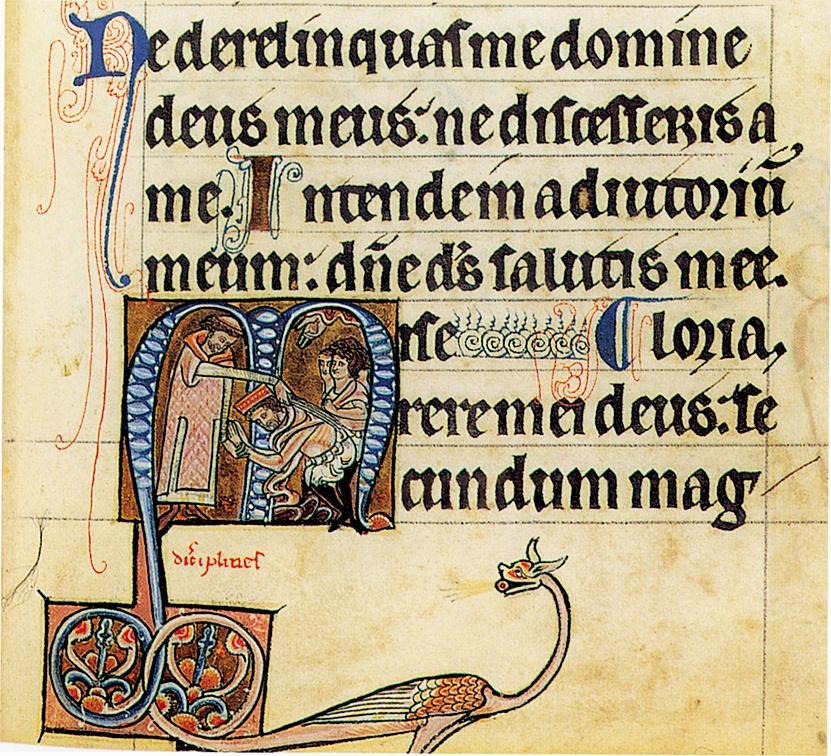 Ne derelinquas me domine
deus meus: ne discesseris a
me. Intende in adiutoriū
meum: dn̄e ds̄ salutis mee.
Mrse Gloria.
rere mei deus: se
cundum mag
disciplines